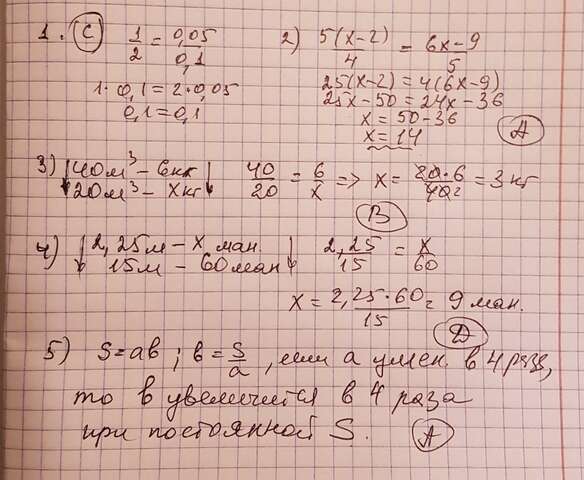 1. (C) 1/2 = 0,05/0,1
1·0,1 = 2·0,05
0,1 = 0,1
2) 5(x-2)/4 = 6x-9/5
25(x-2) = 4(6x-9)
25x-50 = 24x-36
x = 50-36
x = 14
(A)
3) ↓40м³ - 6кг↓ 40/20 = 6/x => x = 20·6/40₂ = 3 кг
↓20м³ - xкг↓
(B)
4) ↓2,25м - x ман.↓ 2,25/15 = x/60
↓15м - 60ман↓
x = 2,25·60/15 = 9 ман.
(D)
5) S=ab ; b = S/a , если a умен. в 4 раза,
то b увеличится в 4 раза
при постоянной S. (A)